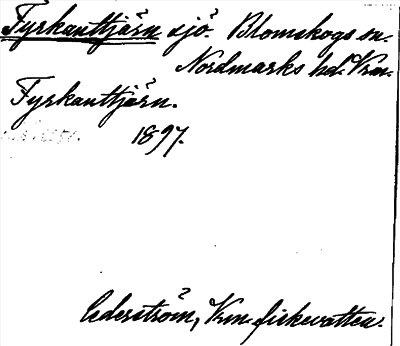 Fyrkanttjärn sjö. Blomskogs sn.
Nordmarks hd. Vrm.
Fyrkanttjärn.
1897.
Cederström, Vrm. fiskevatten.